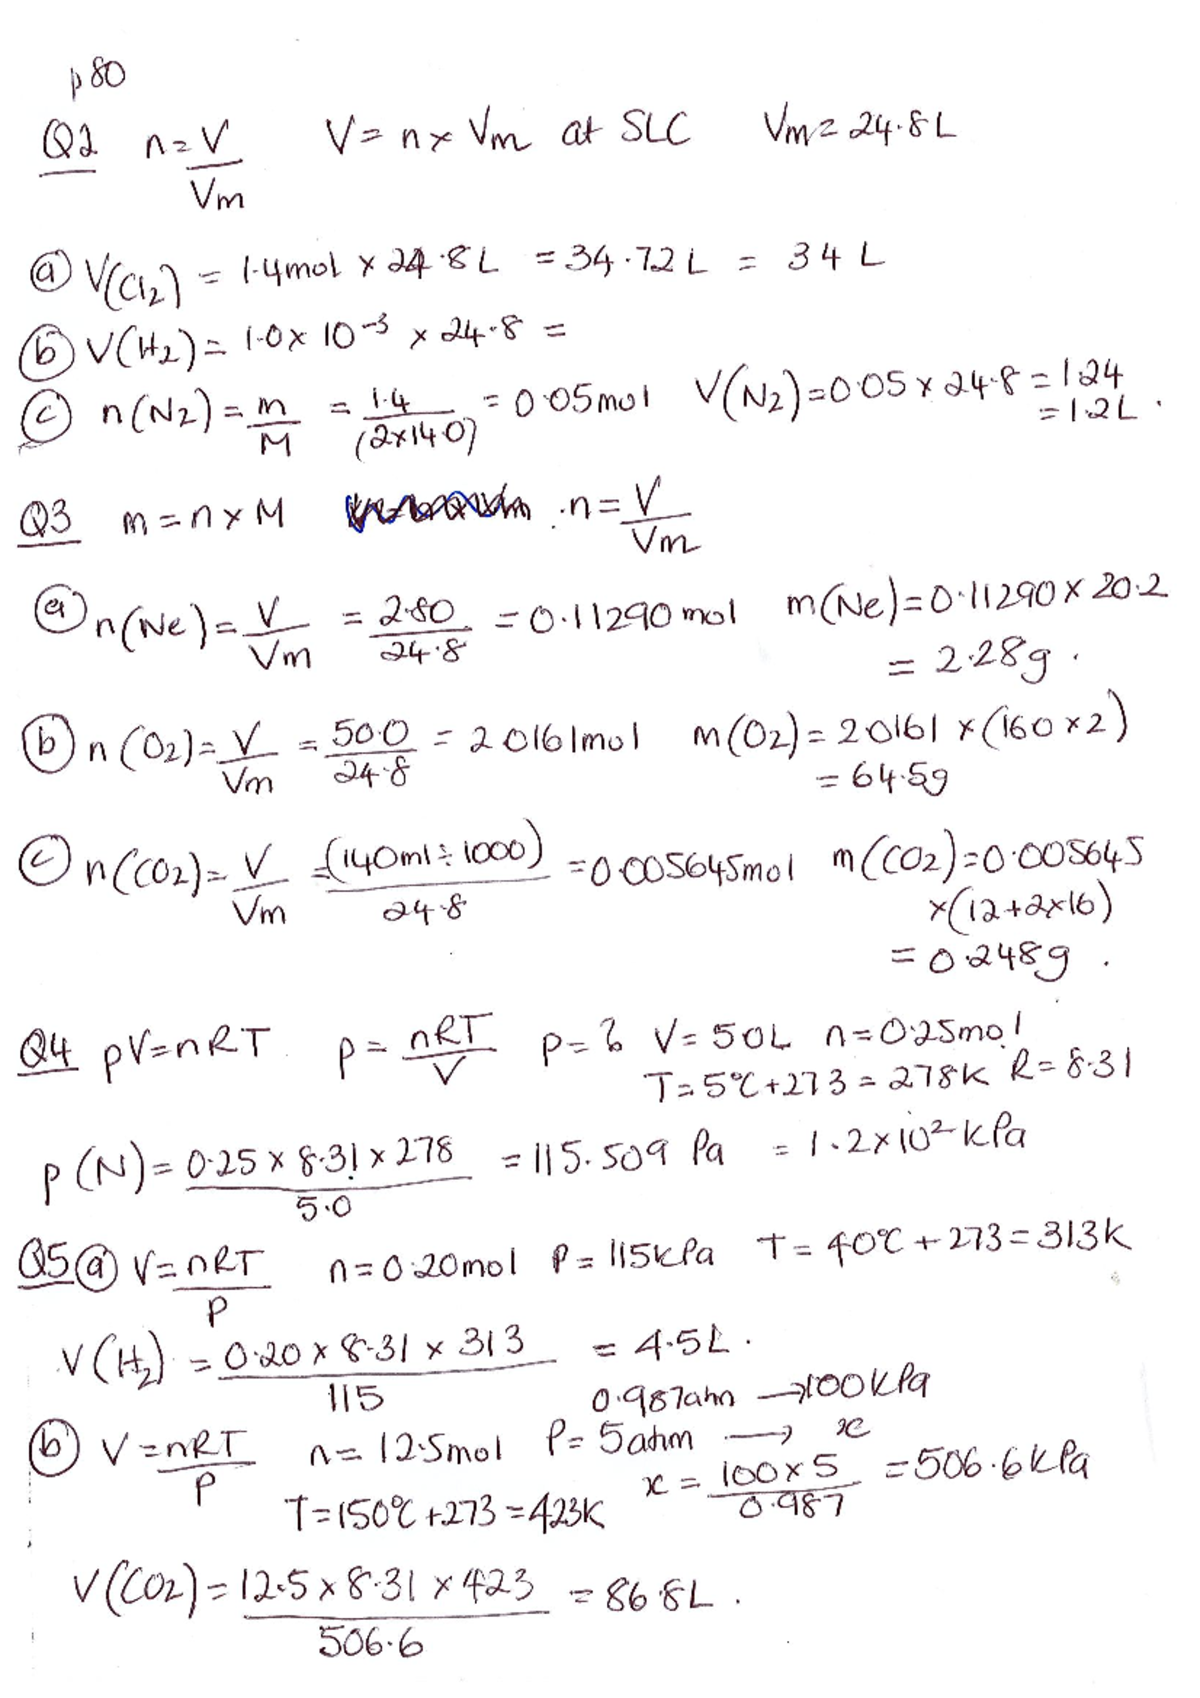 p80
Q2 n=V/Vm V=n×Vm at SLC Vm=24.8L
(a) V(Cl2) = 1.4mol × 24.8L = 34.72L = 34L
(b) V(H2) = 1.0×10⁻³ × 24.8 =
(c) n(N2) = m/M = 1.4/(2×14.0) = 0.05mol V(N2)=0.05×24.8=1.24
=1.2L.
Q3 m=n×M n=V/Vm
(a) n(Ne) = V/Vm = 2.80/24.8 = 0.11290mol m(Ne)=0.11290×20.2
= 2.28g.
(b) n(O2) = V/Vm = 50.0/24.8 = 2.0161mol m(O2) = 2.0161×(16.0×2)
= 64.5g
(c) n(CO2) = V/Vm = (140ml÷1000)/24.8 = 0.005645mol m(CO2)=0.005645
×(12+2×16)
= 0.248g.
Q4 pV=nRT p=nRT/V p=? V=5.0L n=0.25mol
T=5°C+273=278K R=8.31
p(N) = 0.25×8.31×278/5.0 = 115.509 Pa = 1.2×10² kPa
Q5 (a) V=nRT/P n=0.20mol P=115kPa T=40°C+273=313K
V(H2) = 0.20×8.31×313/115 = 4.5L.
0.987atm → 100kPa
(b) V=nRT/P n=12.5mol P=5atm → x
T=150°C+273=423K x=100×5/0.987 = 506.6kPa
V(CO2) = 12.5×8.31×423/506.6 = 86.8L.